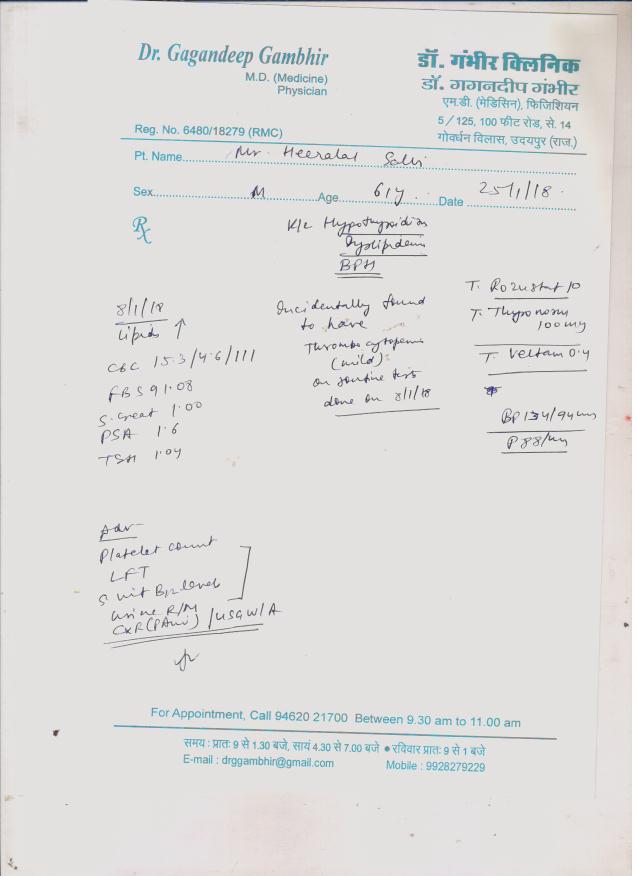 Dr. Gagandeep Gambhir
M.D. (Medicine)
Physician
Reg. No. 6480/18279 (RMC)
डॉ. गंभीर क्लिनिक
डॉ. गगनदीप गंभीर
एम.डी. (मेडिसिन), फिजिशियन
5/125, 100 फीट रोड, से. 14
गोवर्धन विलास, उदयपुर (राज.)
Pt. Name Mr. Heeralal
Sex M Age 61y. Date 25/1/18.
Rx
K/c Hypothyroidism
Dyslipidemia
BPH
8/1/18
Lipids ↑
CBC 15.3/4.6/111
FBS 91.08
S. Creat 1.00
PSA 1.6
TSH 1.04
Incidentally found
to have
Thrombocytopenia
(mild)
on routine tests
done on 8/1/18
T. Rozustat 10
T. Thyronorm
100 mcg
T. Veltam 0.4
BP 134/94 mm
P 88/mn
Adv-
Platelet count
LFT
S. vit B12 level
Urine R/M
CXR (PA view) / USG W/A
For Appointment, Call 94620 21700 Between 9.30 am to 11.00 am
समय : प्रातः 9 से 1.30 बजे, सायं 4.30 से 7.00 बजे ● रविवार प्रातः 9 से 1 बजे
E-mail : drggambhir@gmail.com Mobile : 9928279229